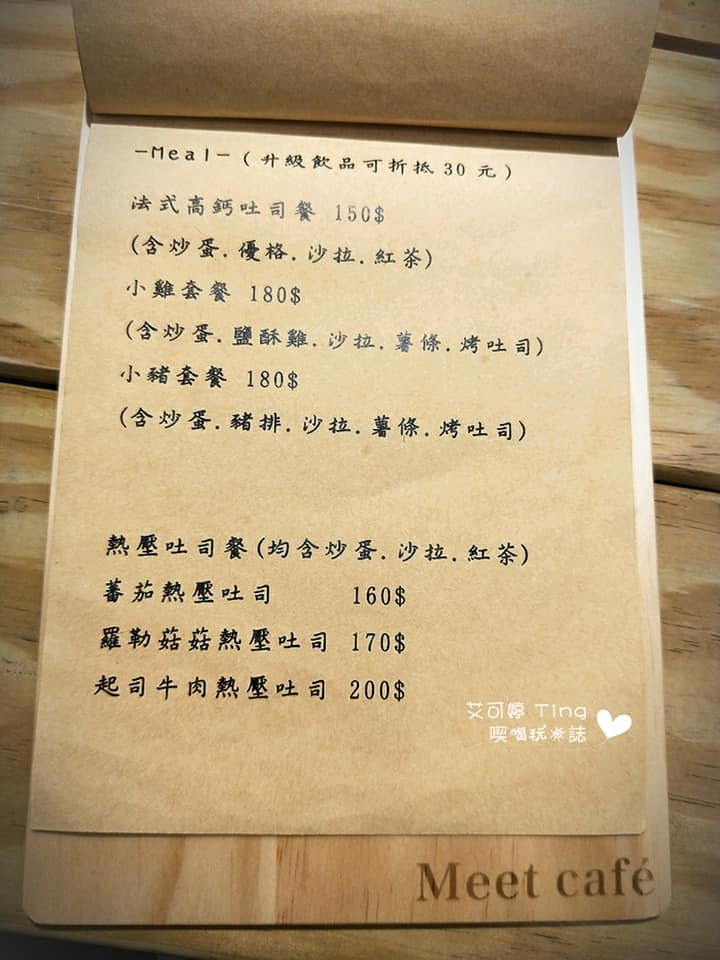 -Meal-(升級飲品可折抵30元)
法式高鈣吐司餐 150$
(含炒蛋.優格.沙拉.紅茶)
小雞套餐 180$
(含炒蛋.鹽酥雞.沙拉.薯條.烤吐司)
小豬套餐 180$
(含炒蛋.豬排.沙拉.薯條.烤吐司)
熱壓吐司餐(均含炒蛋.沙拉.紅茶)
蕃茄熱壓吐司 160$
羅勒菇菇熱壓吐司 170$
起司牛肉熱壓吐司 200$
艾可婷 Ting
喫喝玩樂誌
Meet café